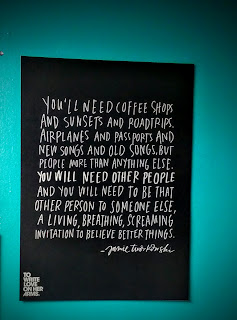 YOU'LL NEED COFFEE SHOPS
AND SUNSETS AND ROADTRIPS.
AIRPLANES AND PASSPORTS AND
NEW SONGS AND OLD SONGS, BUT
PEOPLE MORE THAN ANYTHING ELSE.
YOU WILL NEED OTHER PEOPLE
AND YOU WILL NEED TO BE THAT
OTHER PERSON TO SOMEONE ELSE,
A LIVING, BREATHING, SCREAMING
INVITATION TO BELIEVE BETTER THINGS.
-Jamie Tworkowski
TO
WRITE
LOVE
ON HER
ARMS.